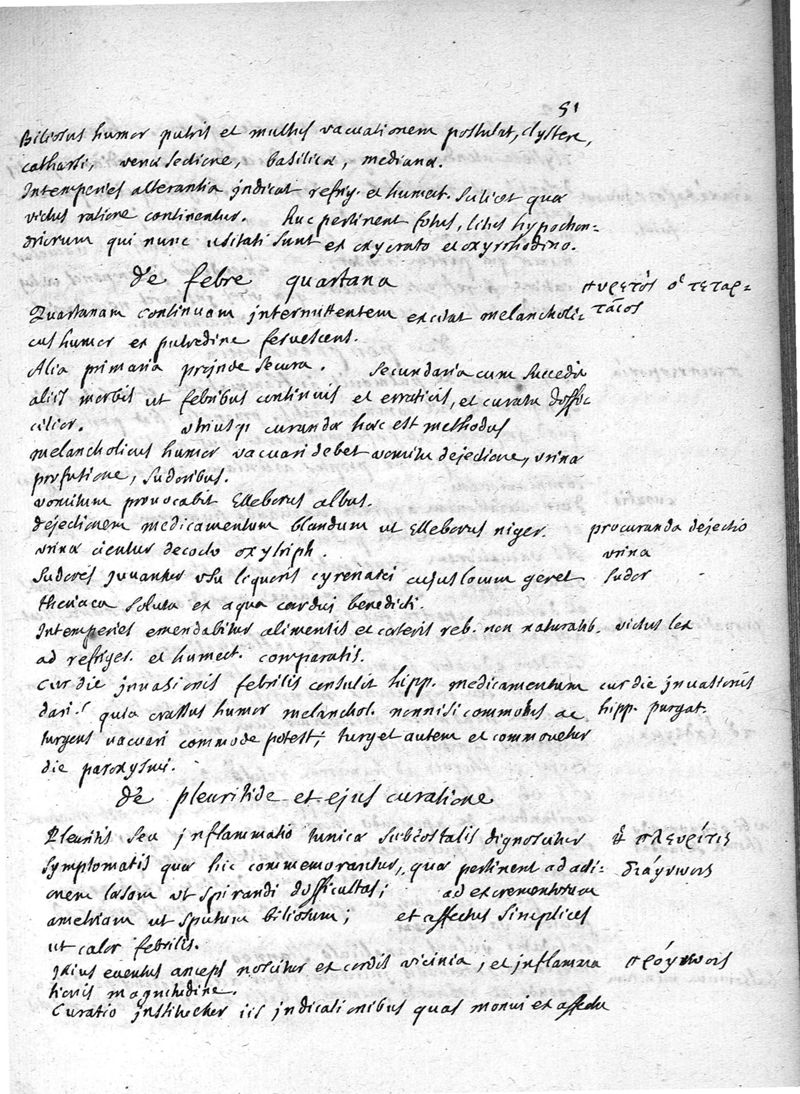 51
Biliosus humor putris et multus vacuationem postulat, clystere,
catharsi, venæ sectione, basilicæ, medianæ.
Intemperies alterantia indicat refrig. et humect. scilicet quæ
victus ratione continentur. huc pertinent fotus, litus hypochon=
driorum qui nunc usitati sunt ex oxycrato et oxyrrhodino.
de febre quartana
πυρετὸς ὁ τεταρ=
ταῖος
Quartanam continuam intermittentem excitat melancholi=
cus humor ex putredine fervescens.
Alia primaria proinde secura. Secundaria cum succedit
aliis morbis ut febribus continuis et erraticis, et curatu diffic
cilior. utriusq; curandæ hæc est methodus
melancholicus humor vacuari debet vomitu dejectione, urinæ
profusione, sudoribus.
vomitum provocabit Elleborus albus.
dejectionem medicamentum blandum ut Elleborus niger.
procuranda dejectio
urina cietur decocto oxytriph.
urina
Sudores juvantur usu liquoris cyrenaici cujus locum geret
sudor
theriaca soluta ex aqua cardui benedicti.
Intemperies emendabitur alimentis et cæteris reb. non naturalib.
victus lex
ad refriger. et humect. comparatis.
Cur die invasionis febrilis consulit hipp. medicamentum
cur die invasionis
dari? quia crassus humor melanchol. nonnisi commotus ac
hipp. purgat.
turgens vacuari commode potest; turget autem et commovetur
die paroxysmi.
de pleuritide et ejus curatione
Pleuritis seu inflammatio tunicæ subcostalis dignoscitur
ἡ πλευρῖτις
symptomatis quæ hic commemorantur, quæ pertinent ad acti=
διάγνωσις
onem læsam ut spirandi difficultas; ad excrementorum
ametriam ut sputum biliosum; et affectus simplices
ut calor febrilis.
Ipsius eventus anceps noscitur ex cordis vicinia, et inflamma
πρόγνωσις
tionis magnitudine.
Curatio instituetur iis indicationibus quas monui ex affectu